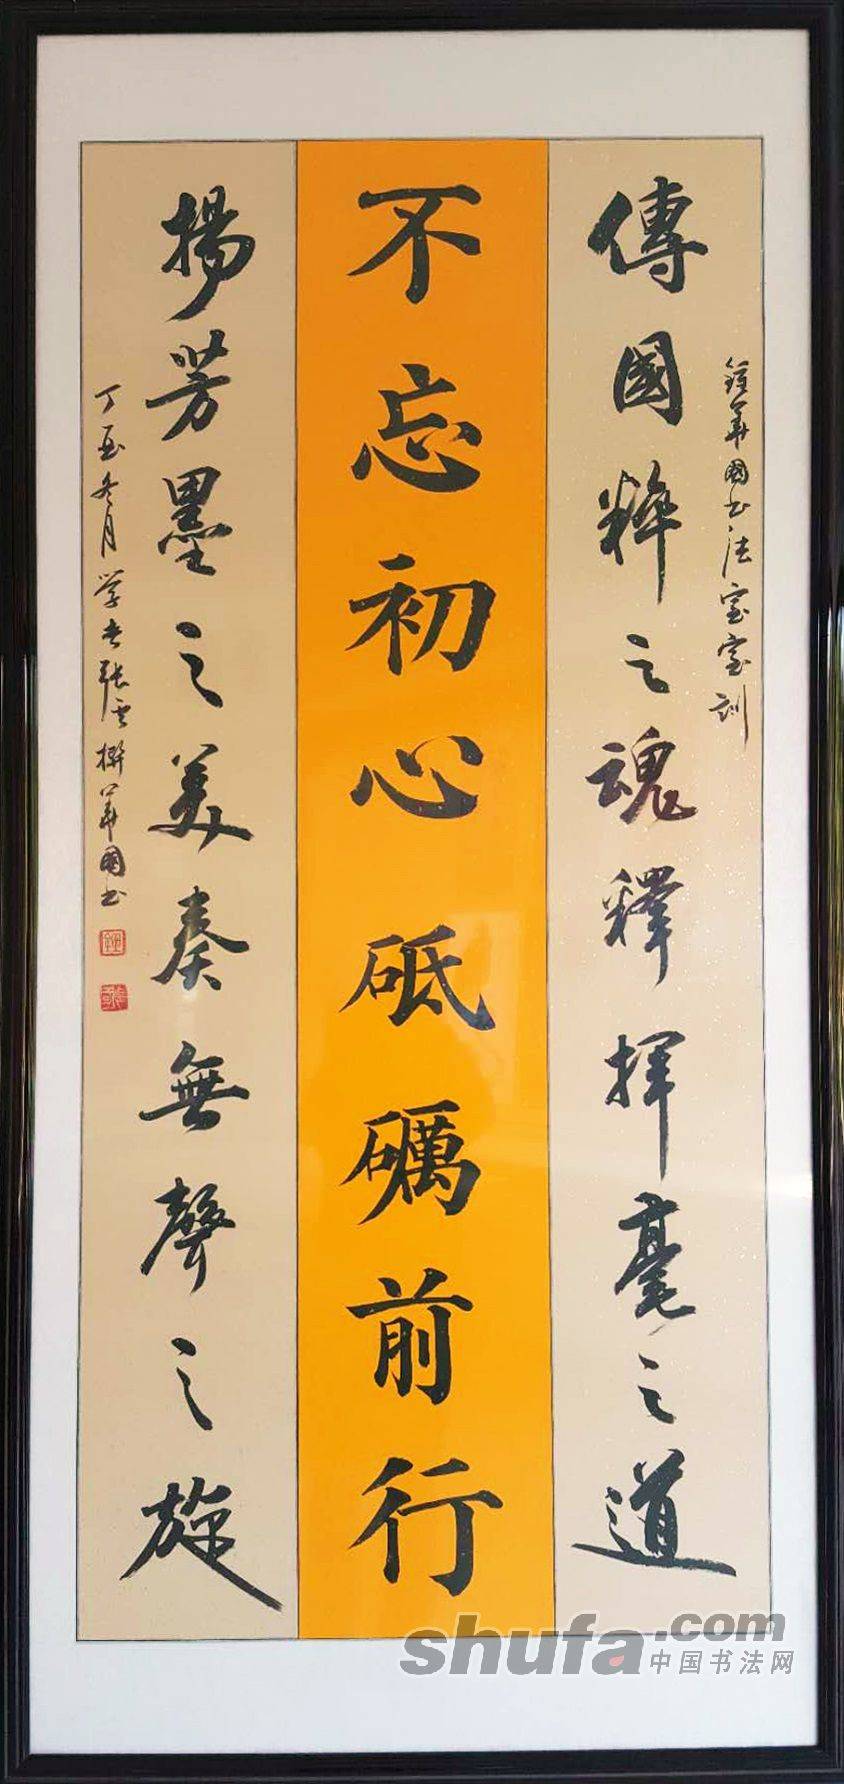 鐘華國书法室室訓
傳國粹之魂釋揮毫之道
不忘初心砥礪前行
揚芳墨之美奏無聲之旋
丁酉冬月学书張雲撰華國书
shufa.com
中国书法网